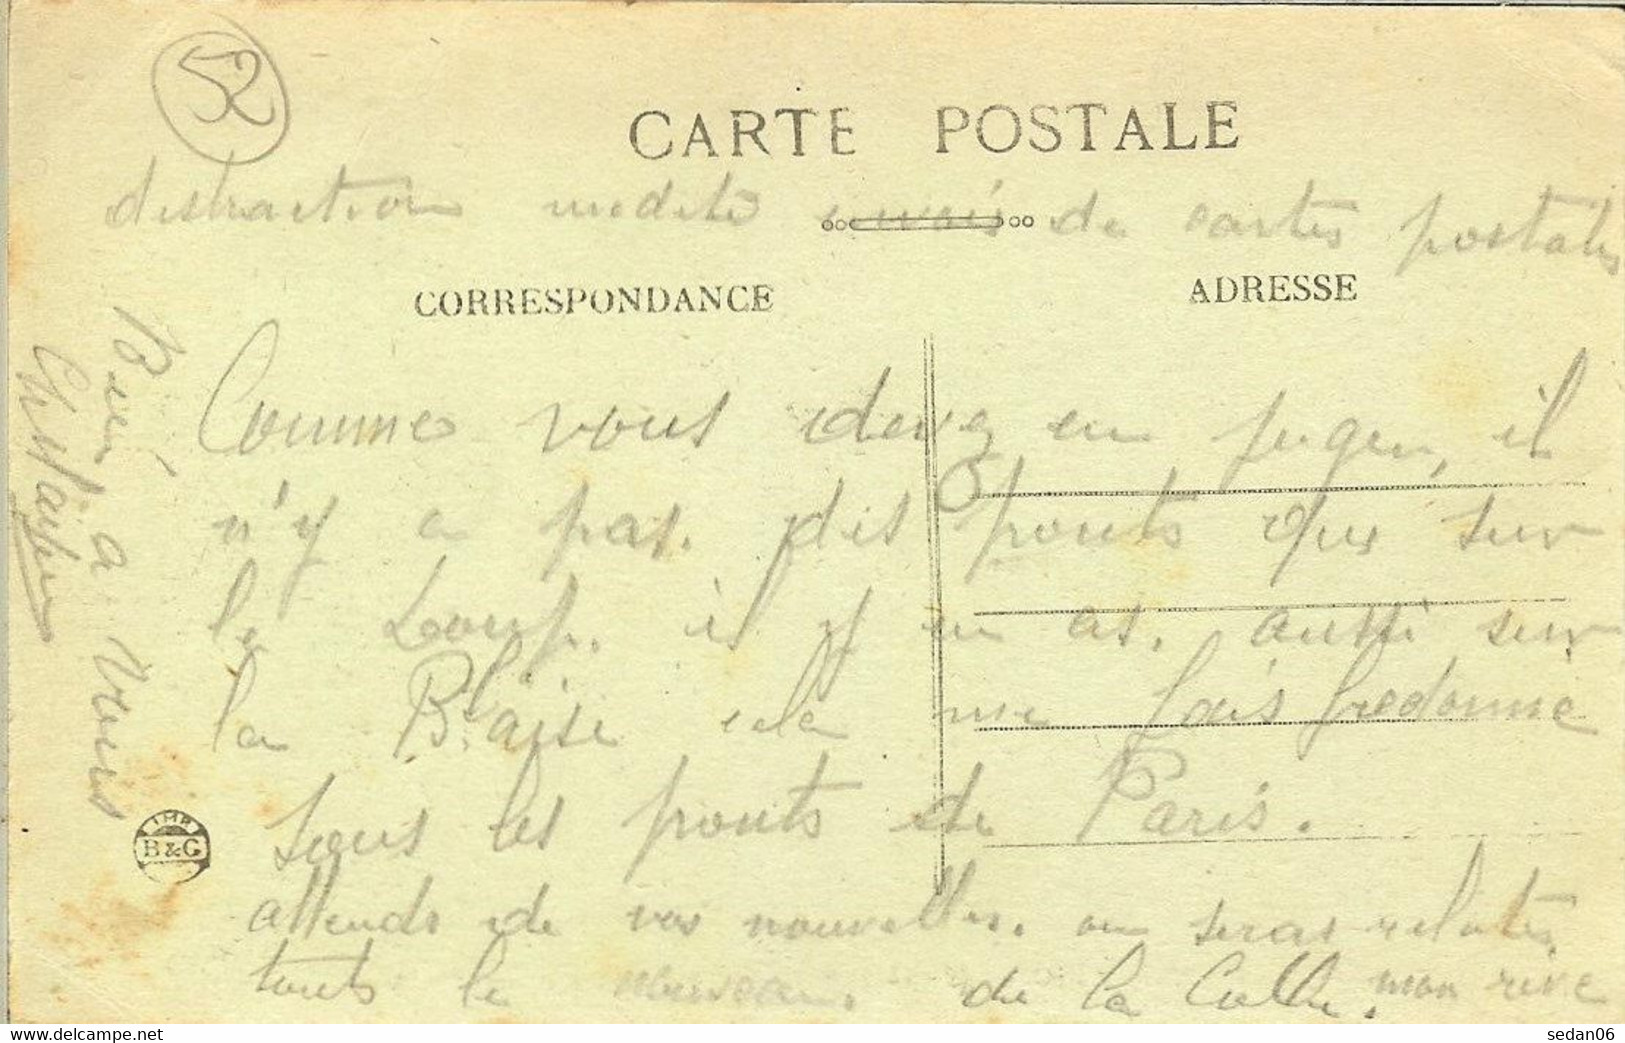 52
CARTE POSTALE
distraction medité envois de cartes postales
CORRESPONDANCE
ADRESSE
Comme vous devez en juger, il
n'y a pas. des ponts que sur
le Loup. il y en as. aussi sur
la Blaise cela me fais fredonné
sous les ponts de Paris.
attends de vos nouvelles. ou seras relatés
touts le nouveau. de la Colle. mon rive
Bien à vous
IMP.
B & G
sedan06